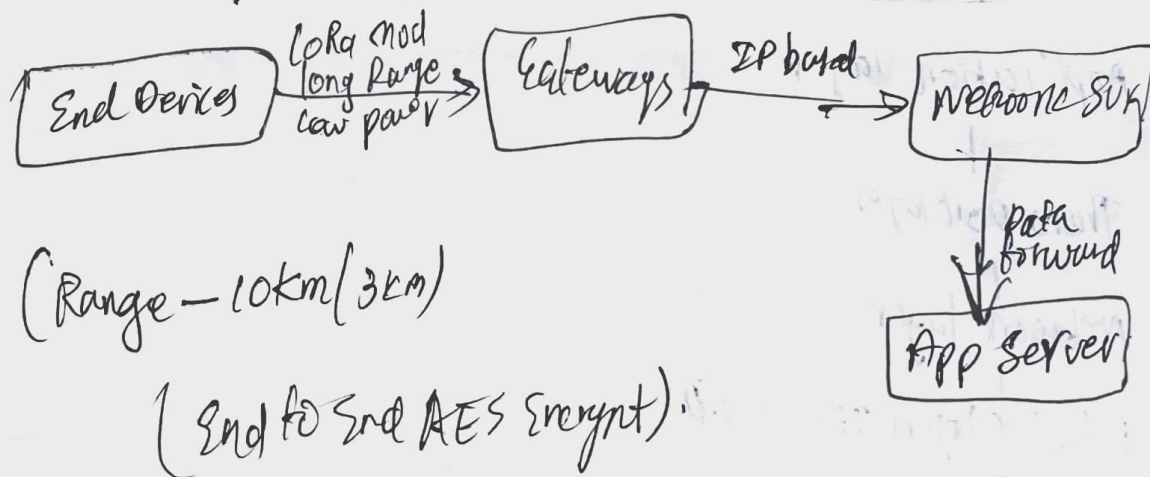 LoRa mod
long Range
low power
End Devices
Gateways
IP based
Network SVR
Data
forward
App Server
(Range – 10km (3km)
(End to End AES Encrypt).